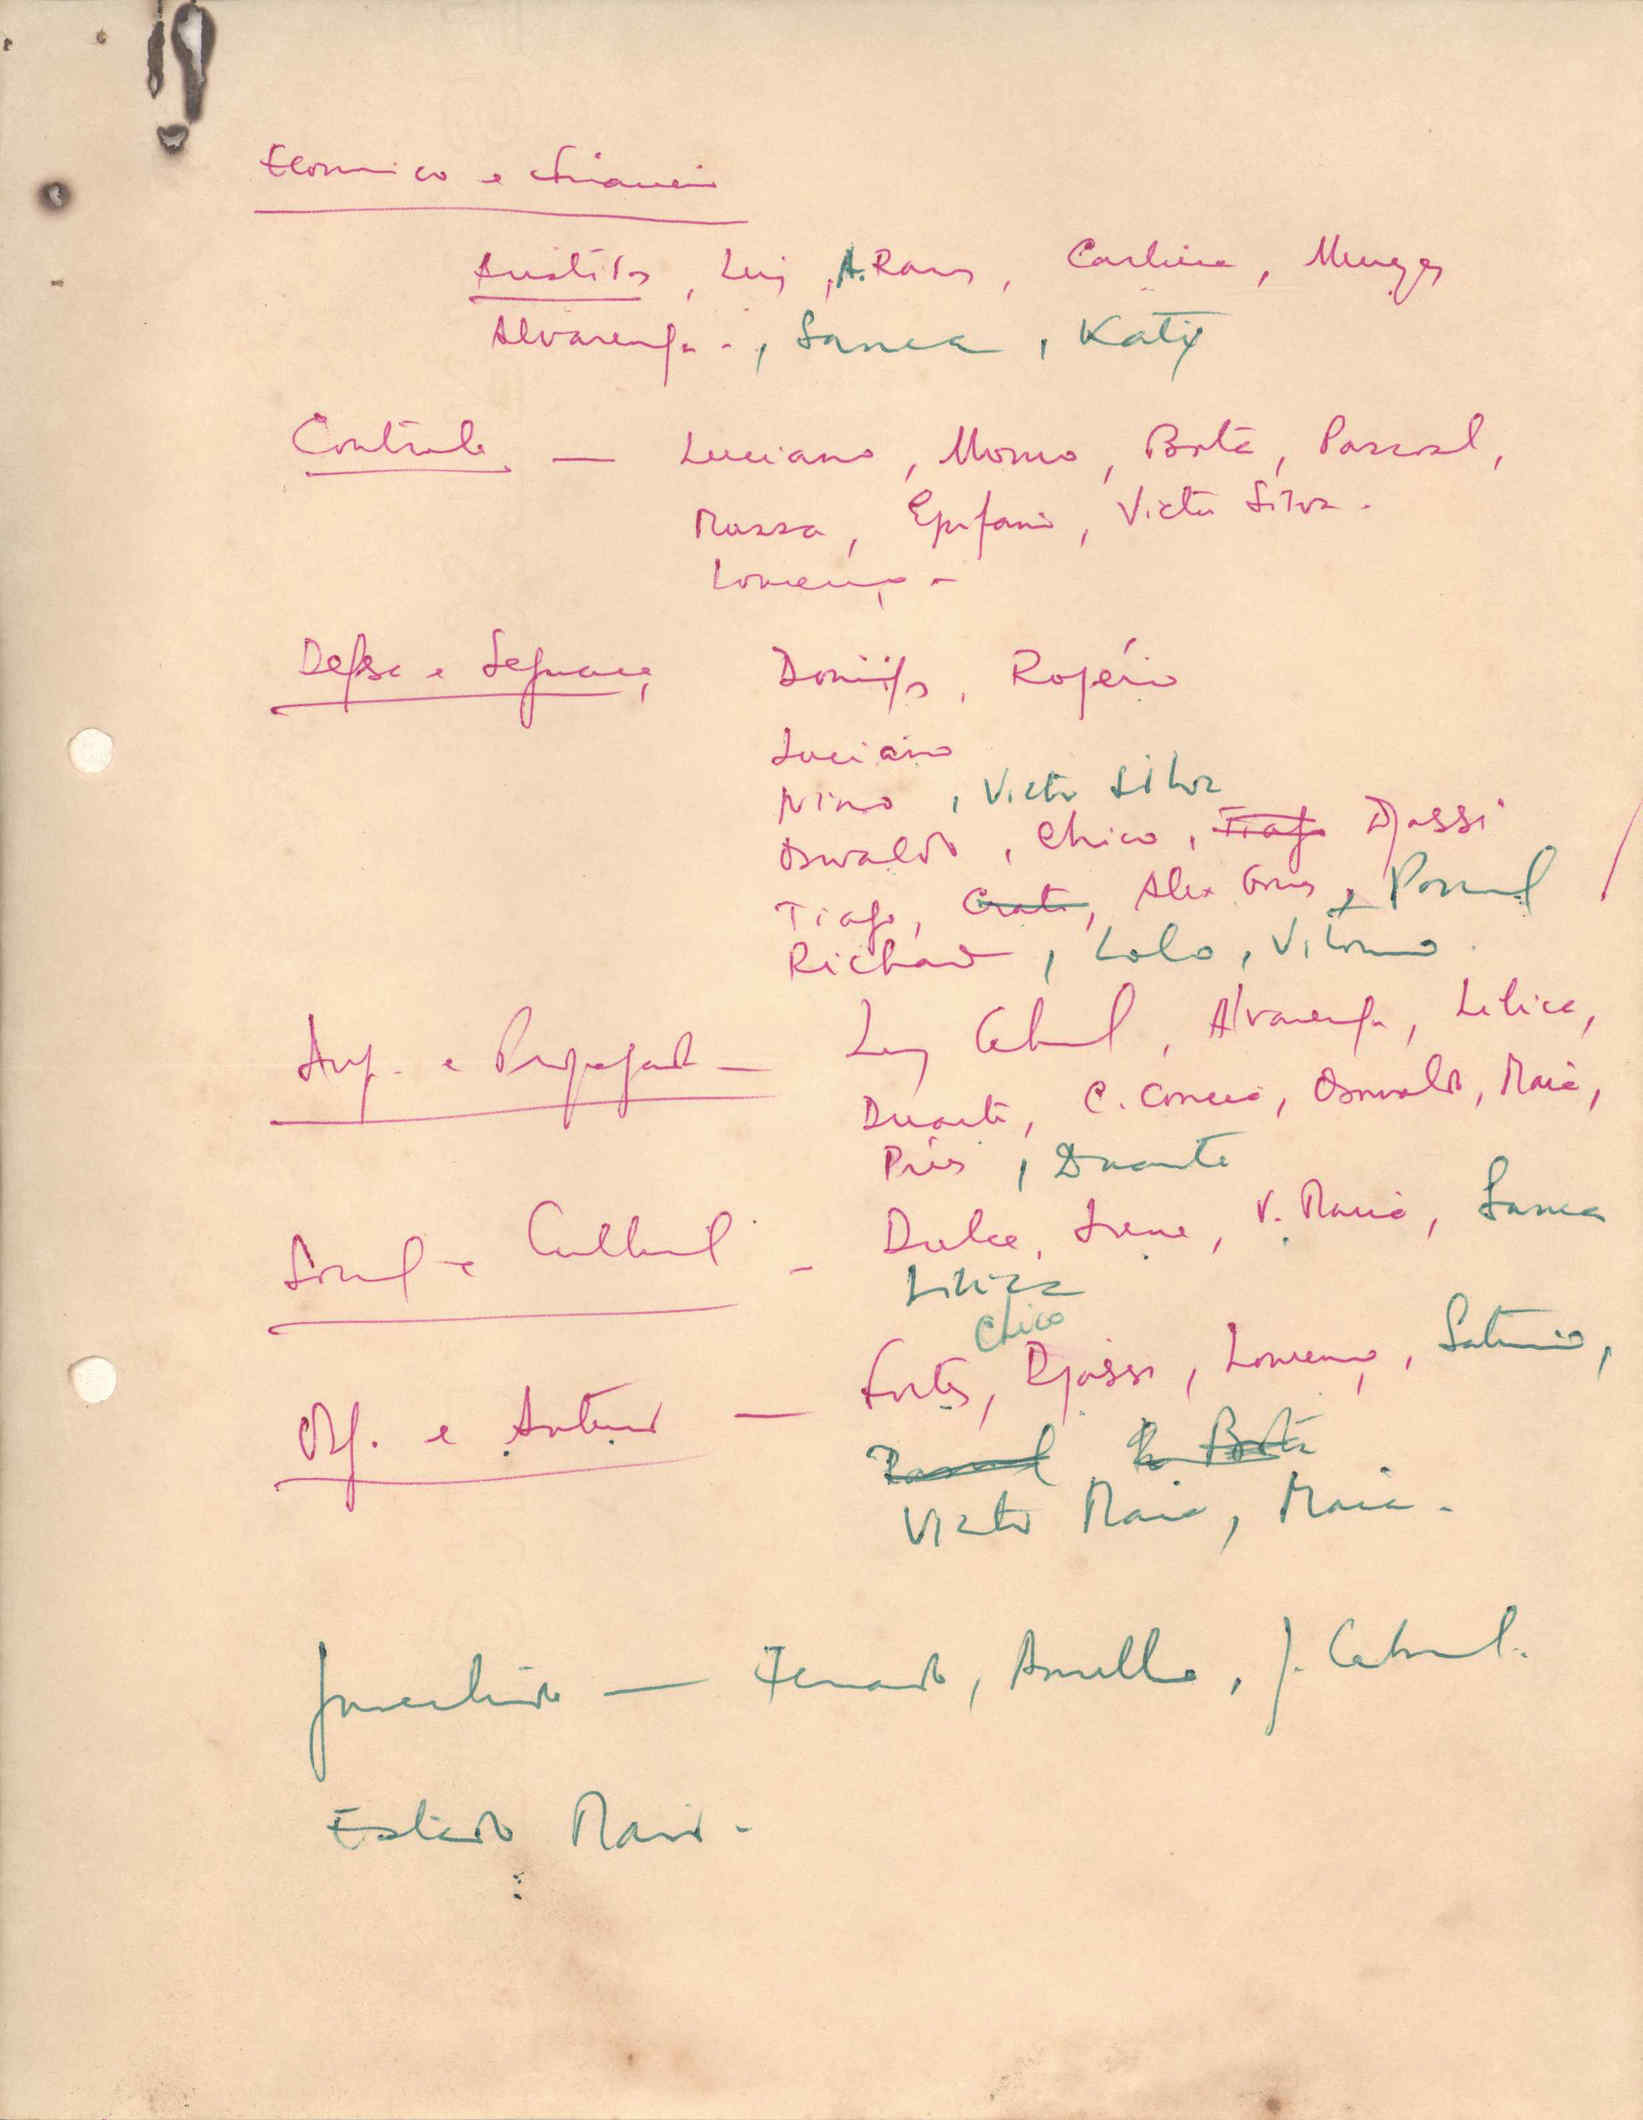 Económico e Financeiro
Aristides, Luiz, A. Ramos, Carline, Menezes
Alvarenga -, Sanca, Katy
Controle — Luciano, Momo, Bota, Pascoal,
Mussa, Epifanio, Victor Silva.
Lourenço -
Defesa e Segurança, Domingos, Rogério
Luciano
Nino, Victor Silva
Osvaldo, Chico, Tiago Djassi
Tiago, Alex Gomes, Pascoal
Richard, Lolo, Vitorino.
Inf. e Propaganda — Luiz Cabral, Alvarenga, Lilica,
Duarte, C. Correia, Oswaldo, Maria,
Pires, Duarte
Social e Cultural - Dulce, Irene, V. Maria, Sanca
Lilica
Chico
Org. e Interno — Fortes, Djassi, Lourenço, Saturnino,
Pascoal Bota
Victor Maria, Maria.
Juventude — Fernando, Armello, J. Cabral.
Estado Maior -